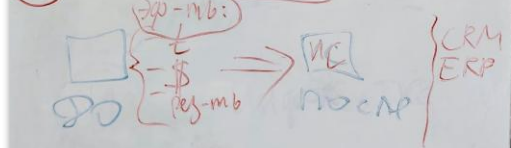 Эфф-ть:
t
- $
- рез-ть
ДО
ИС
ПОСЛЕ
CRM
ERP